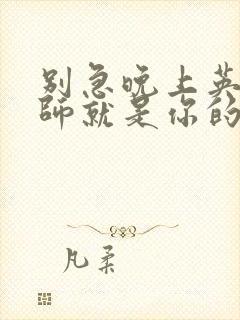 别急晚上英
师就是你的
凡柔